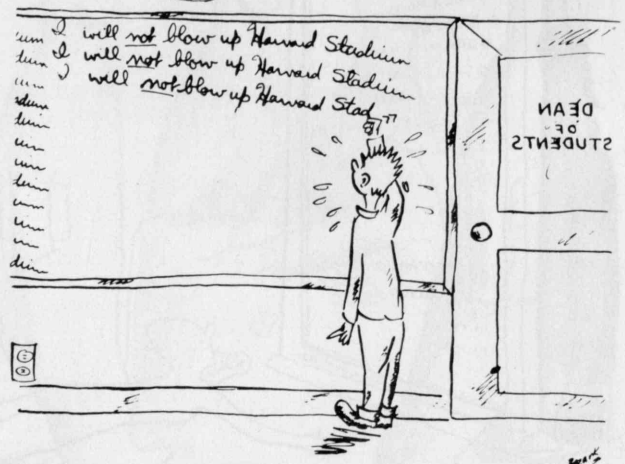 I will not blow up Harvard Stadium
I will not blow up Harvard Stadium
I will not blow up Harvard Stad
dium
DEAN
OF
STUDENTS